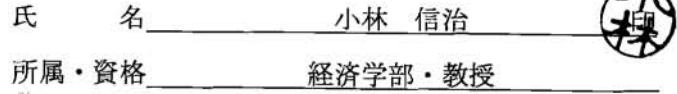 氏 名 小林 信治 印
所属・資格 経済学部・教授